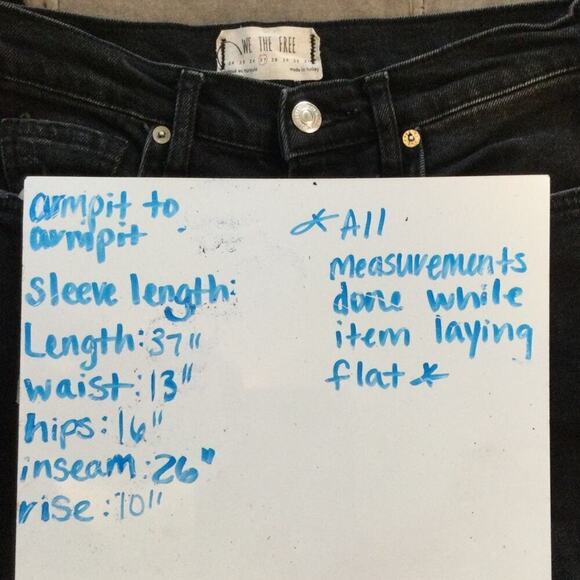 WE THE FREE
made in turkey
armpit to
armpit
sleeve length:
Length: 37"
waist: 13"
hips: 16"
inseam: 26"
rise: 10"
*All
measurements
done while
item laying
flat*